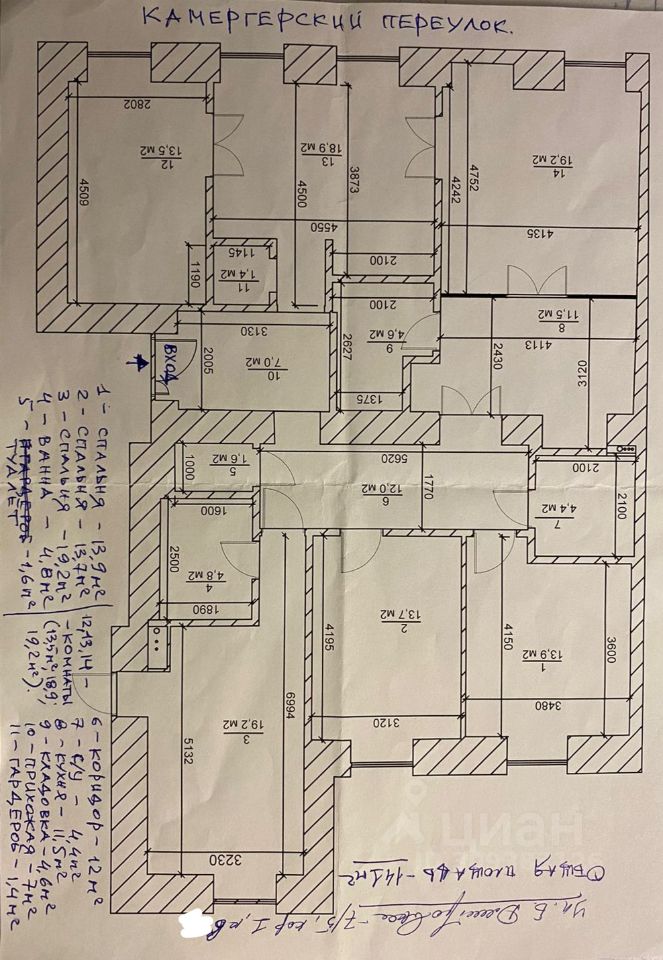 КАМЕРГЕРСКИЙ ПЕРЕУЛОК.
2802
4509
12
13,5 м2
13
18,9 м2
4500
3873
4550
14
19,2 м2
4752
4242
4135
1190
1145
11
1,4 м2
2100
2100
9
4,6 м2
2627
1375
8
11,5 м2
4113
2430
3120
3130
2005
10
7,0 м2
ВХОД
1000
5
1,6 м2
5620
1770
6
12,0 м2
2100
2100
7
4,4 м2
1600
2500
4
4,8 м2
1890
4195
2
13,7 м2
3120
4150
1
13,9 м2
3600
3480
6994
5132
3
19,2 м2
3230
1 - СПАЛЬНЯ - 13,9 м²
2 - СПАЛЬНЯ - 13,7 м²
3 - СПАЛЬНЯ - 19,2 м²
4 - ВАННА - 4,8 м²
5 - ГАРДЕРОБ - 1,6 м²
ТУАЛЕТ
12,13,14 -
- КОМНАТЫ
(13,5 м², 18,9;
19,2 м²).
6 - КОРИДОР - 12 м²
7 - С/У - 4,4 м²
8 - КУХНЯ - 11,5 м²
9 - КЛАДОВКА - 4,6 м²
10 - ПРИХОЖАЯ - 7 м²
11 - ГАРДЕРОБ - 1,4 м²
ОБЩАЯ ПЛОЩАДЬ - 141 м²
Ул. Б Дмитровка - 7/5, кор 1, кв
циан